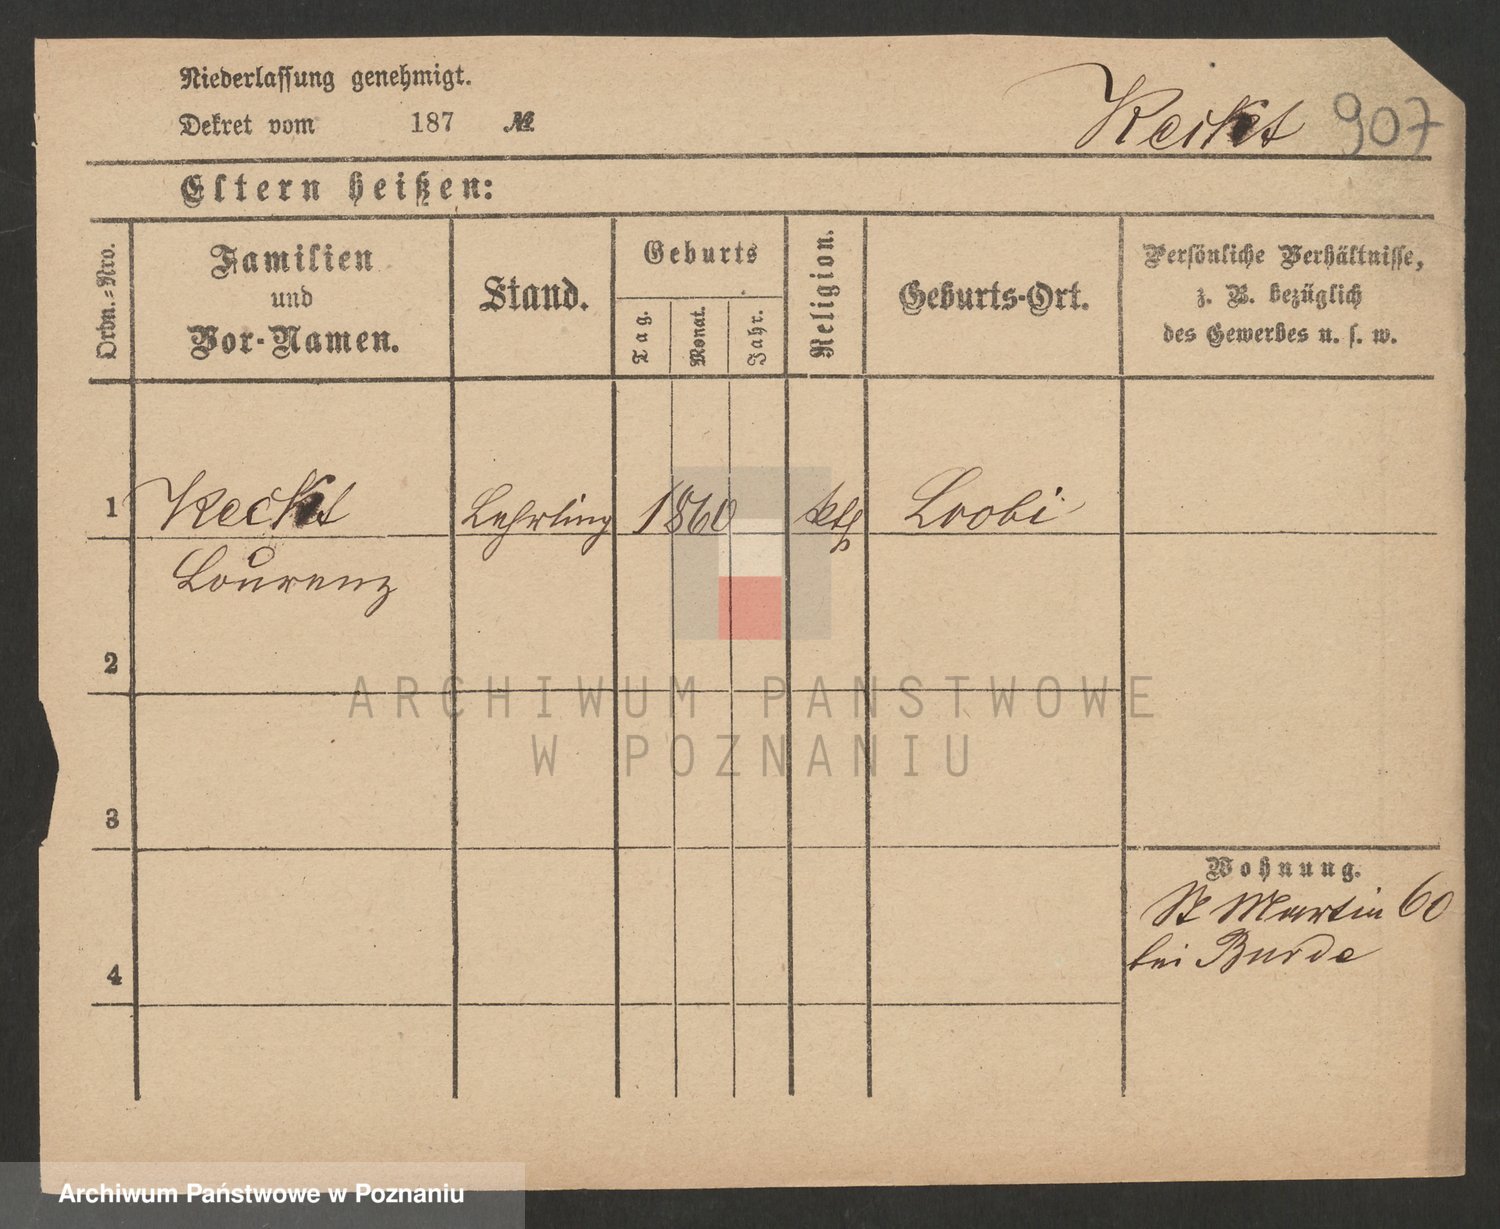 Niederlassung genehmigt.
Dekret vom 187 №
907
Eltern heißen:
Ordn.=Nro.
Familien
und
Vor-Namen.
Stand.
Geburts
Tag.
Monat.
Jahr.
Religion.
Geburts-Ort.
Persönliche Verhältnisse,
z. B. bezüglich
des Gewerbes u. s. w.
1 Lehrling 1860 kth
2
3
4
Wohnung.
St Martin 60
bei Burde
ARCHIWUM PAŃSTWOWE
W POZNANIU
Archiwum Państwowe w Poznaniu